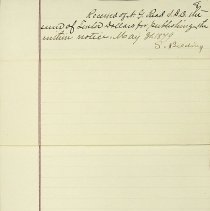 Received of N. G. Read S.D.B. the
sum of Dollars for publishing the
within notice. May 1879
S. Belding